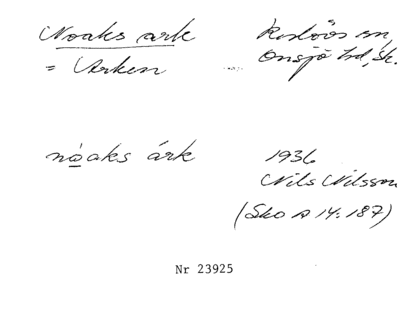 Noaks ark
= Arken
Röstånga sn,
Onsjö hd, Sk.
nòaks árk
1936
Nils Nilsson
(Sko A 14:187)
Nr 23925